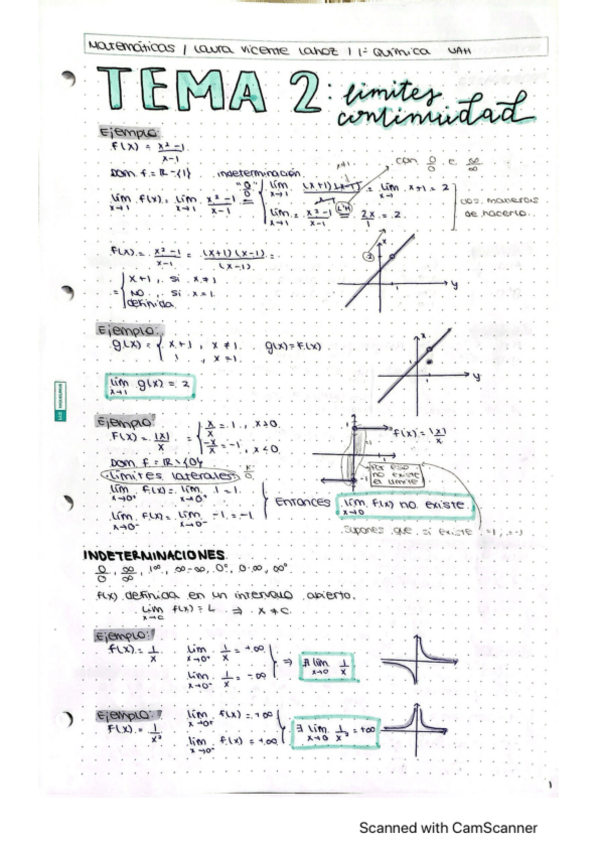 Matemáticas / Laura Vicente Lahoz / 1º Química UAH
TEMA 2: límites continuidad
Ejemplo:
f(x) = x²-1 / x-1
Dom f = ℝ - {1} indeterminación
con 0/0 e ∞/∞
lim x→1 f(x) = lim x→1 x²-1 / x-1 = "0/0"
lim x→1 (x+1)(x-1) / x-1 = lim x→1 x+1 = 2
lim x→1 x²-1 / x-1 = L'H 2x/1 = 2.
dos maneras de hacerlo.
f(x) = x²-1 / x-1 = (x+1)(x-1) / (x-1) =
= { x+1, si x≠1
NO definida, si x=1.
2 x 1 y
Ejemplo:
g(x) = { x+1, x≠1. g(x)=f(x)
1, x=1.
lim x→1 g(x) = 2
x 1 y
Ejemplo:
f(x) = |x|/x = { x/x = 1, x>0.
-x/x = -1, x<0.
f(x) = |x|/x
Dom f = ℝ \ {0}
Por eso no existe el límite
Límites laterales
lim x→0⁺ f(x) = lim x→0⁺ 1 = 1.
lim x→0⁻ f(x) = lim x→0⁻ -1 = -1
Entonces lim x→0 f(x) no existe
INDETERMINACIONES
0/0, ∞/∞, 1^∞, ∞-∞, 0⁰, 0·∞, ∞⁰
f(x) definida en un intervalo abierto.
lim x→c f(x) = L ⇒ x≠c.
Ejemplo:
f(x) = 1/x
lim x→0⁺ 1/x = +∞
lim x→0⁻ 1/x = -∞
⇒ ∄ lim x→0 1/x
Ejemplo:
f(x) = 1/x²
lim x→0⁺ f(x) = +∞
lim x→0⁻ f(x) = +∞
∃ lim x→0 1/x² = +∞
1
Scanned with CamScanner